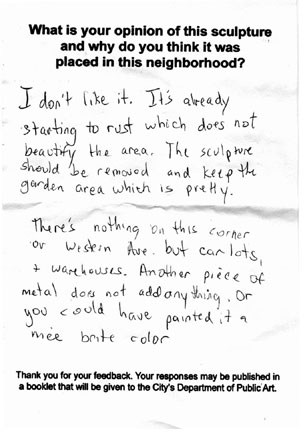 What is your opinion of this sculpture
and why do you think it was
placed in this neighborhood?
I don't like it. It's already
starting to rust which does not
beautify the area. The sculpture
should be removed and keep the
garden area which is pretty.
There's nothing on this corner
or Western Ave. but car lots,
+ warehouses. Another piece of
metal does not add anything. Or
you could have painted it a
nice brite color
Thank you for your feedback. Your responses may be published in
a booklet that will be given to the City's Department of Public Art.